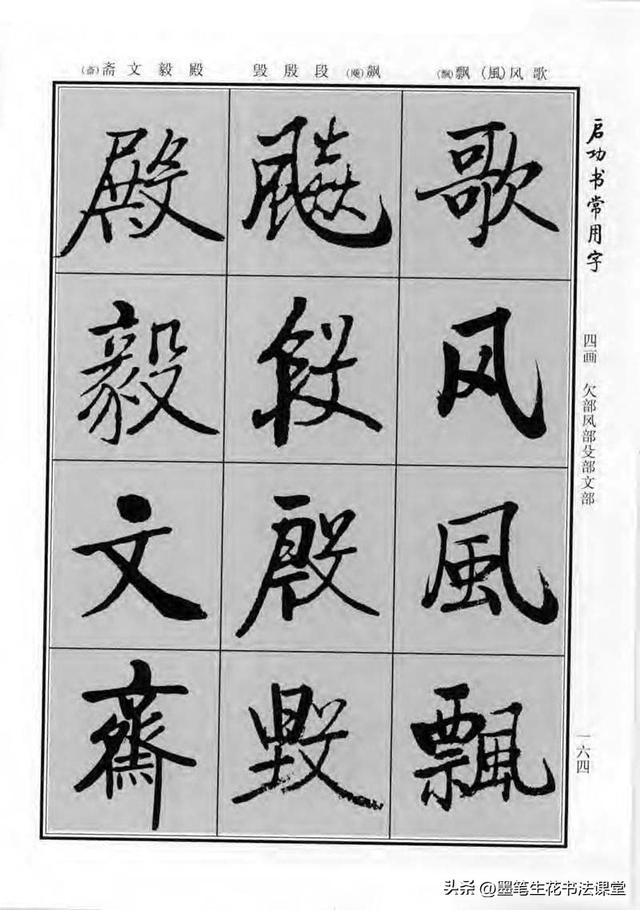 启功书常用字
四画 欠部风部殳部文部
一六四
歌风(風)飘(飄)
飙(飈)段殷毁
殿毅文斋(齋)
歌
风
風
飄
飈
段
殷
毁
殿
毅
文
齋
头条 @墨笔生花书法课堂